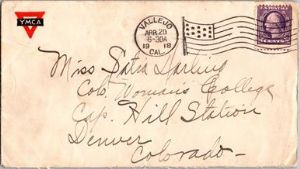 YMCA
VALLEJO
APR 20
6-30A
1918
CAL.
CENTS
Miss Darling
Colo. Woman's College
Cap. Hill Station
Denver
Colorado-